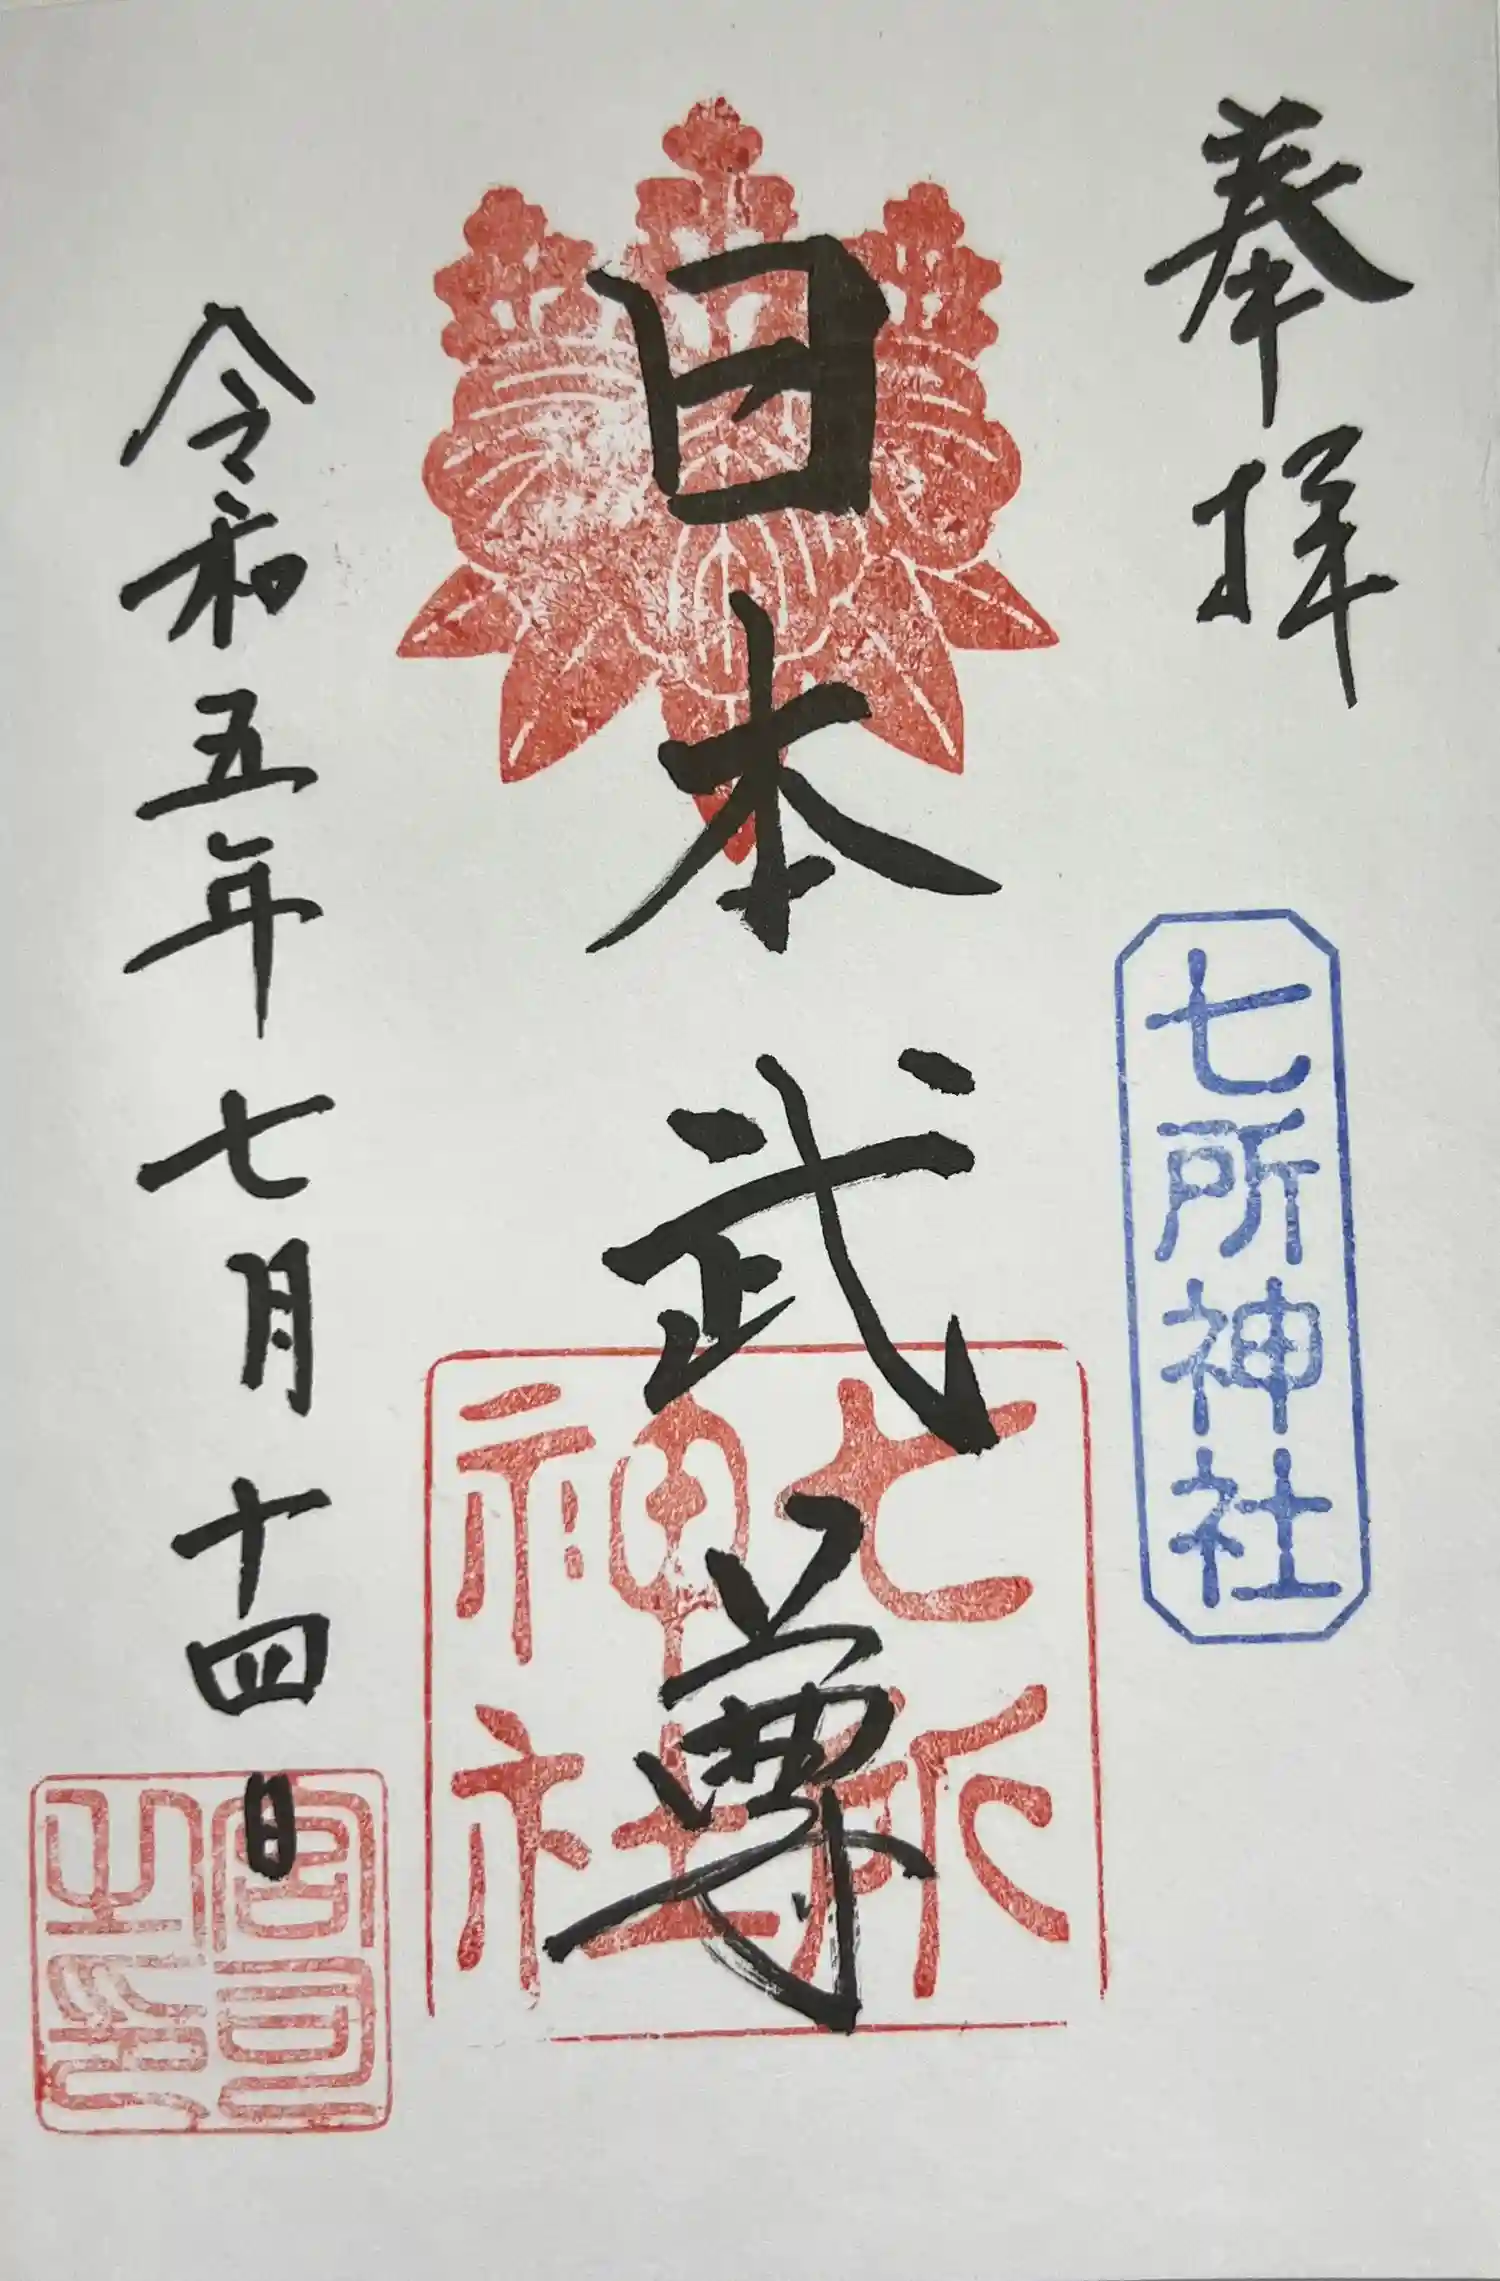 奉拝
七所神社
日本武尊
七所
神社
令和五年七月十四日
宮司
之印